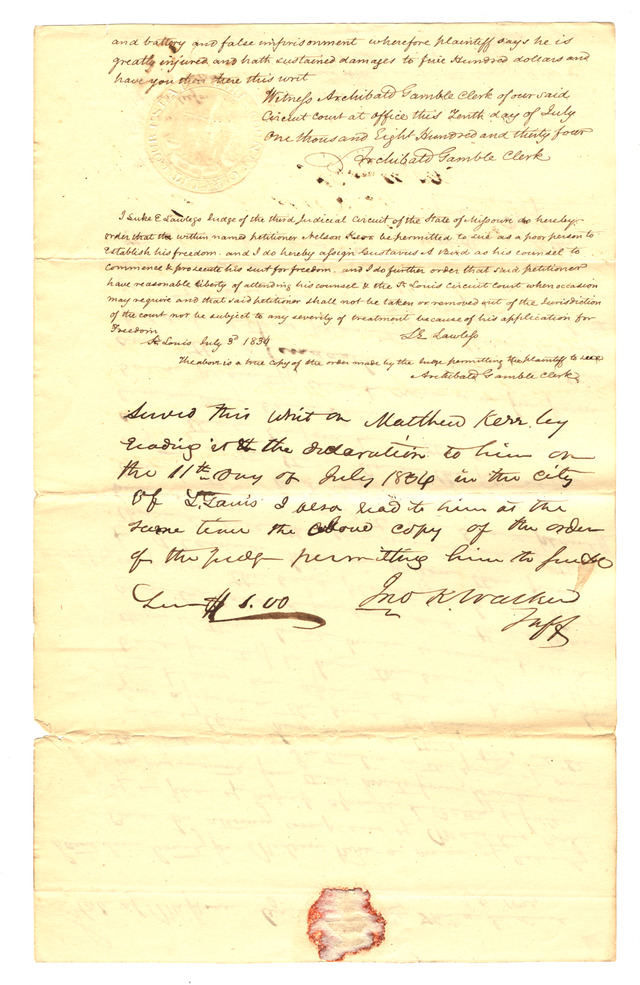 and battery and false imprisonment wherefore plaintiff says he is
greatly injured and hath sustained damages to five Hundred dollars and
have you then there this writ
Witness Archibald Gamble Clerk of our said
Circuit court at office this Tenth day of July
One thousand Eight Hundred and thirty four
Archibald Gamble Clerk
I Luke E Lawless Judge of the third Judicial Circuit of the State of Missouri do hereby
order that the within named petitioner Nelson Kerr be permitted to sue as a poor person to
establish his freedom. and I do hereby assign Gustavus A Bird as his counsel to
commence & prosecute his suit for freedom. and I do further order that said petitioner
have reasonable liberty of attending his counsel & the St Louis Circuit court when occasion
may require and that said petitioner shall not be taken or removed out of the Jurisdiction
of the court nor be subject to any severity of treatment because of his application for
Freedom
St. Louis July 3d 1834
LE Lawless
The above is a true copy of the order made by the Judge permitting the plaintiff to sue
Archibald Gamble Clerk
Served this writ on Matthew Kerr by
reading it & the declaration to him on
the 11th Day of July 1834 in the city
of St. Louis I also read to him at the
same time the above copy of the order
of the judge permitting him to sue &c
$ 1.00
Jno K. Walker
Shff